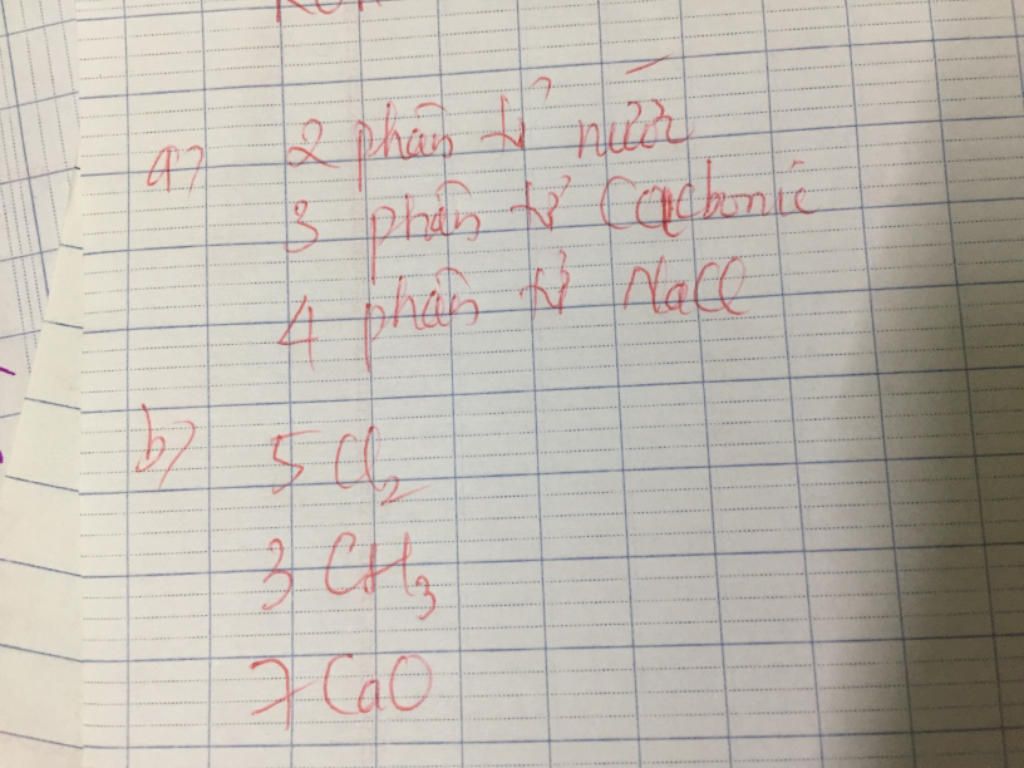 a) 2 phân tử nước
3 phân tử Cacbonic
4 phân tử NaCl
b) 5 Cl₂
3 CH₃
7 CaO